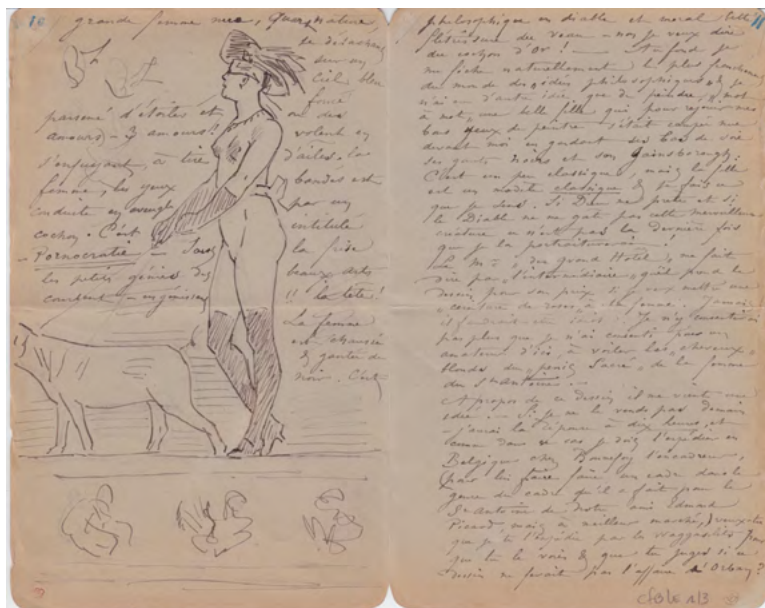 10
grande femme nue, quart nature,
se détachant
sur un
Ciel bleu
foncé
parsemé d'étoiles et où des
amours – 3 amours! volent en
s'enfuyant, à tire d'ailes. La
femme, les yeux bandés est
conduite en aveugle par un
cochon. C'est intitulé
– Pornocratie – Sous la frise
les petits génies des beaux arts
courbent – en génisses la tête!
La femme
est chaussée
& gantée de
noir. C'est
11
philosophique en diable et moral cette
du veau – non je veux dire
du cochon d'Or! – Au fond je
me fiche naturellement le plus
du monde des idées philosophiques & je
n'ai eu d'autre idée que de peindre, mot
à mot, une belle fille qui pour
yeux de peintre s'était campée nue
devant moi en gardant ses bas de soie
ses gants noirs et son Gainsborough.
C'est un peu classique, mais la fille
est un modèle classique & je fais ce
que je sens. Si Dieu me prête et si
le Diable ne me gâte pas cette merveilleuse
créature ce n'est pas la dernière fois
que je la portraiturerai!
Le M du grand Hotel, me fait
dire par l'intermédiaire, qu'il prend le
dessin pour son prix si je veux mettre une
ceinture de roses à la femme. Jamais
Je n'y consentirai
pas plus que je n'ai consenti pour un
amateur d'ici à voiler les cheveux
blonds du Sacré de la femme
du St Antoine. –
A propos de ce dessin il me vient une
idée – Si je ne le vends pas demain
– j'aurai la réponse à deux heures, et
comme dans ce cas je dois l'expédier en
Belgique chez Bonnefoy l'encadreur,
pour lui faire faire un cadre dans le
genre du cadre qu'il a fait pour le
St Antoine de notre ami Edmond
Picard, mais à meilleur marché, veux-tu
que je te l'expédie par les
que tu le voies & que tu juges si ce
dessin ne ferait pas l'affaire d'Orban?